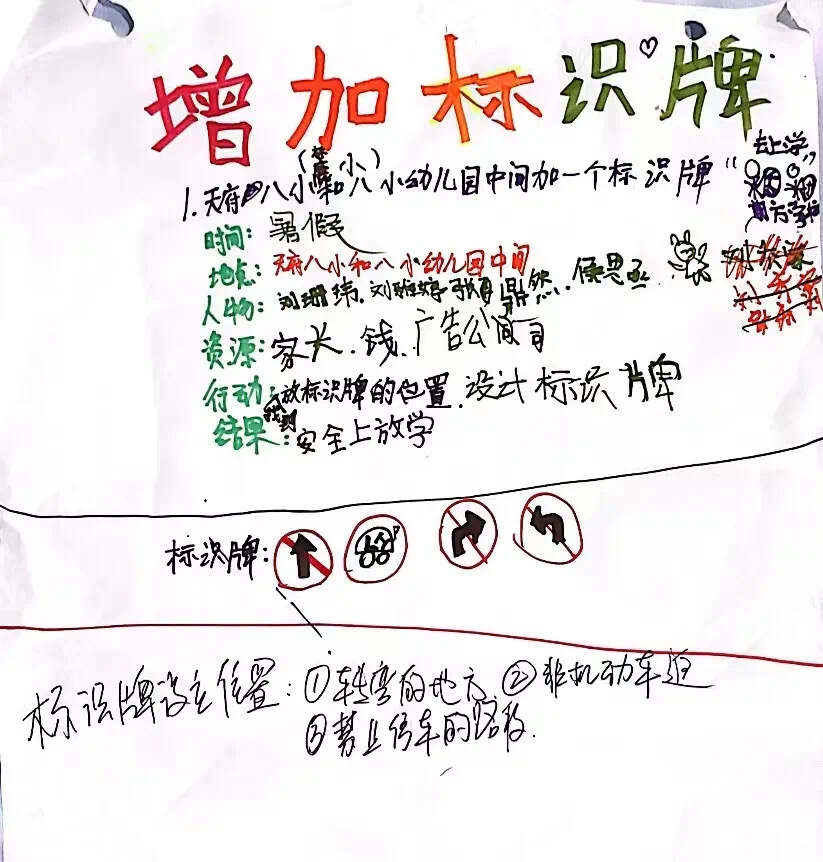 增加标识牌
1.天府八小和八小幼儿园中间加一个标识牌
去上学
时间:暑假
地点:天府八小和八小幼儿园中间
人物:
资源:家长、钱、广告公司
行动:找到放标识牌的位置、设计标识牌
结果:安全上放学
标识牌:
标识牌设立位置:①转弯的地方 ②非机动车道
③禁止停车的路段.